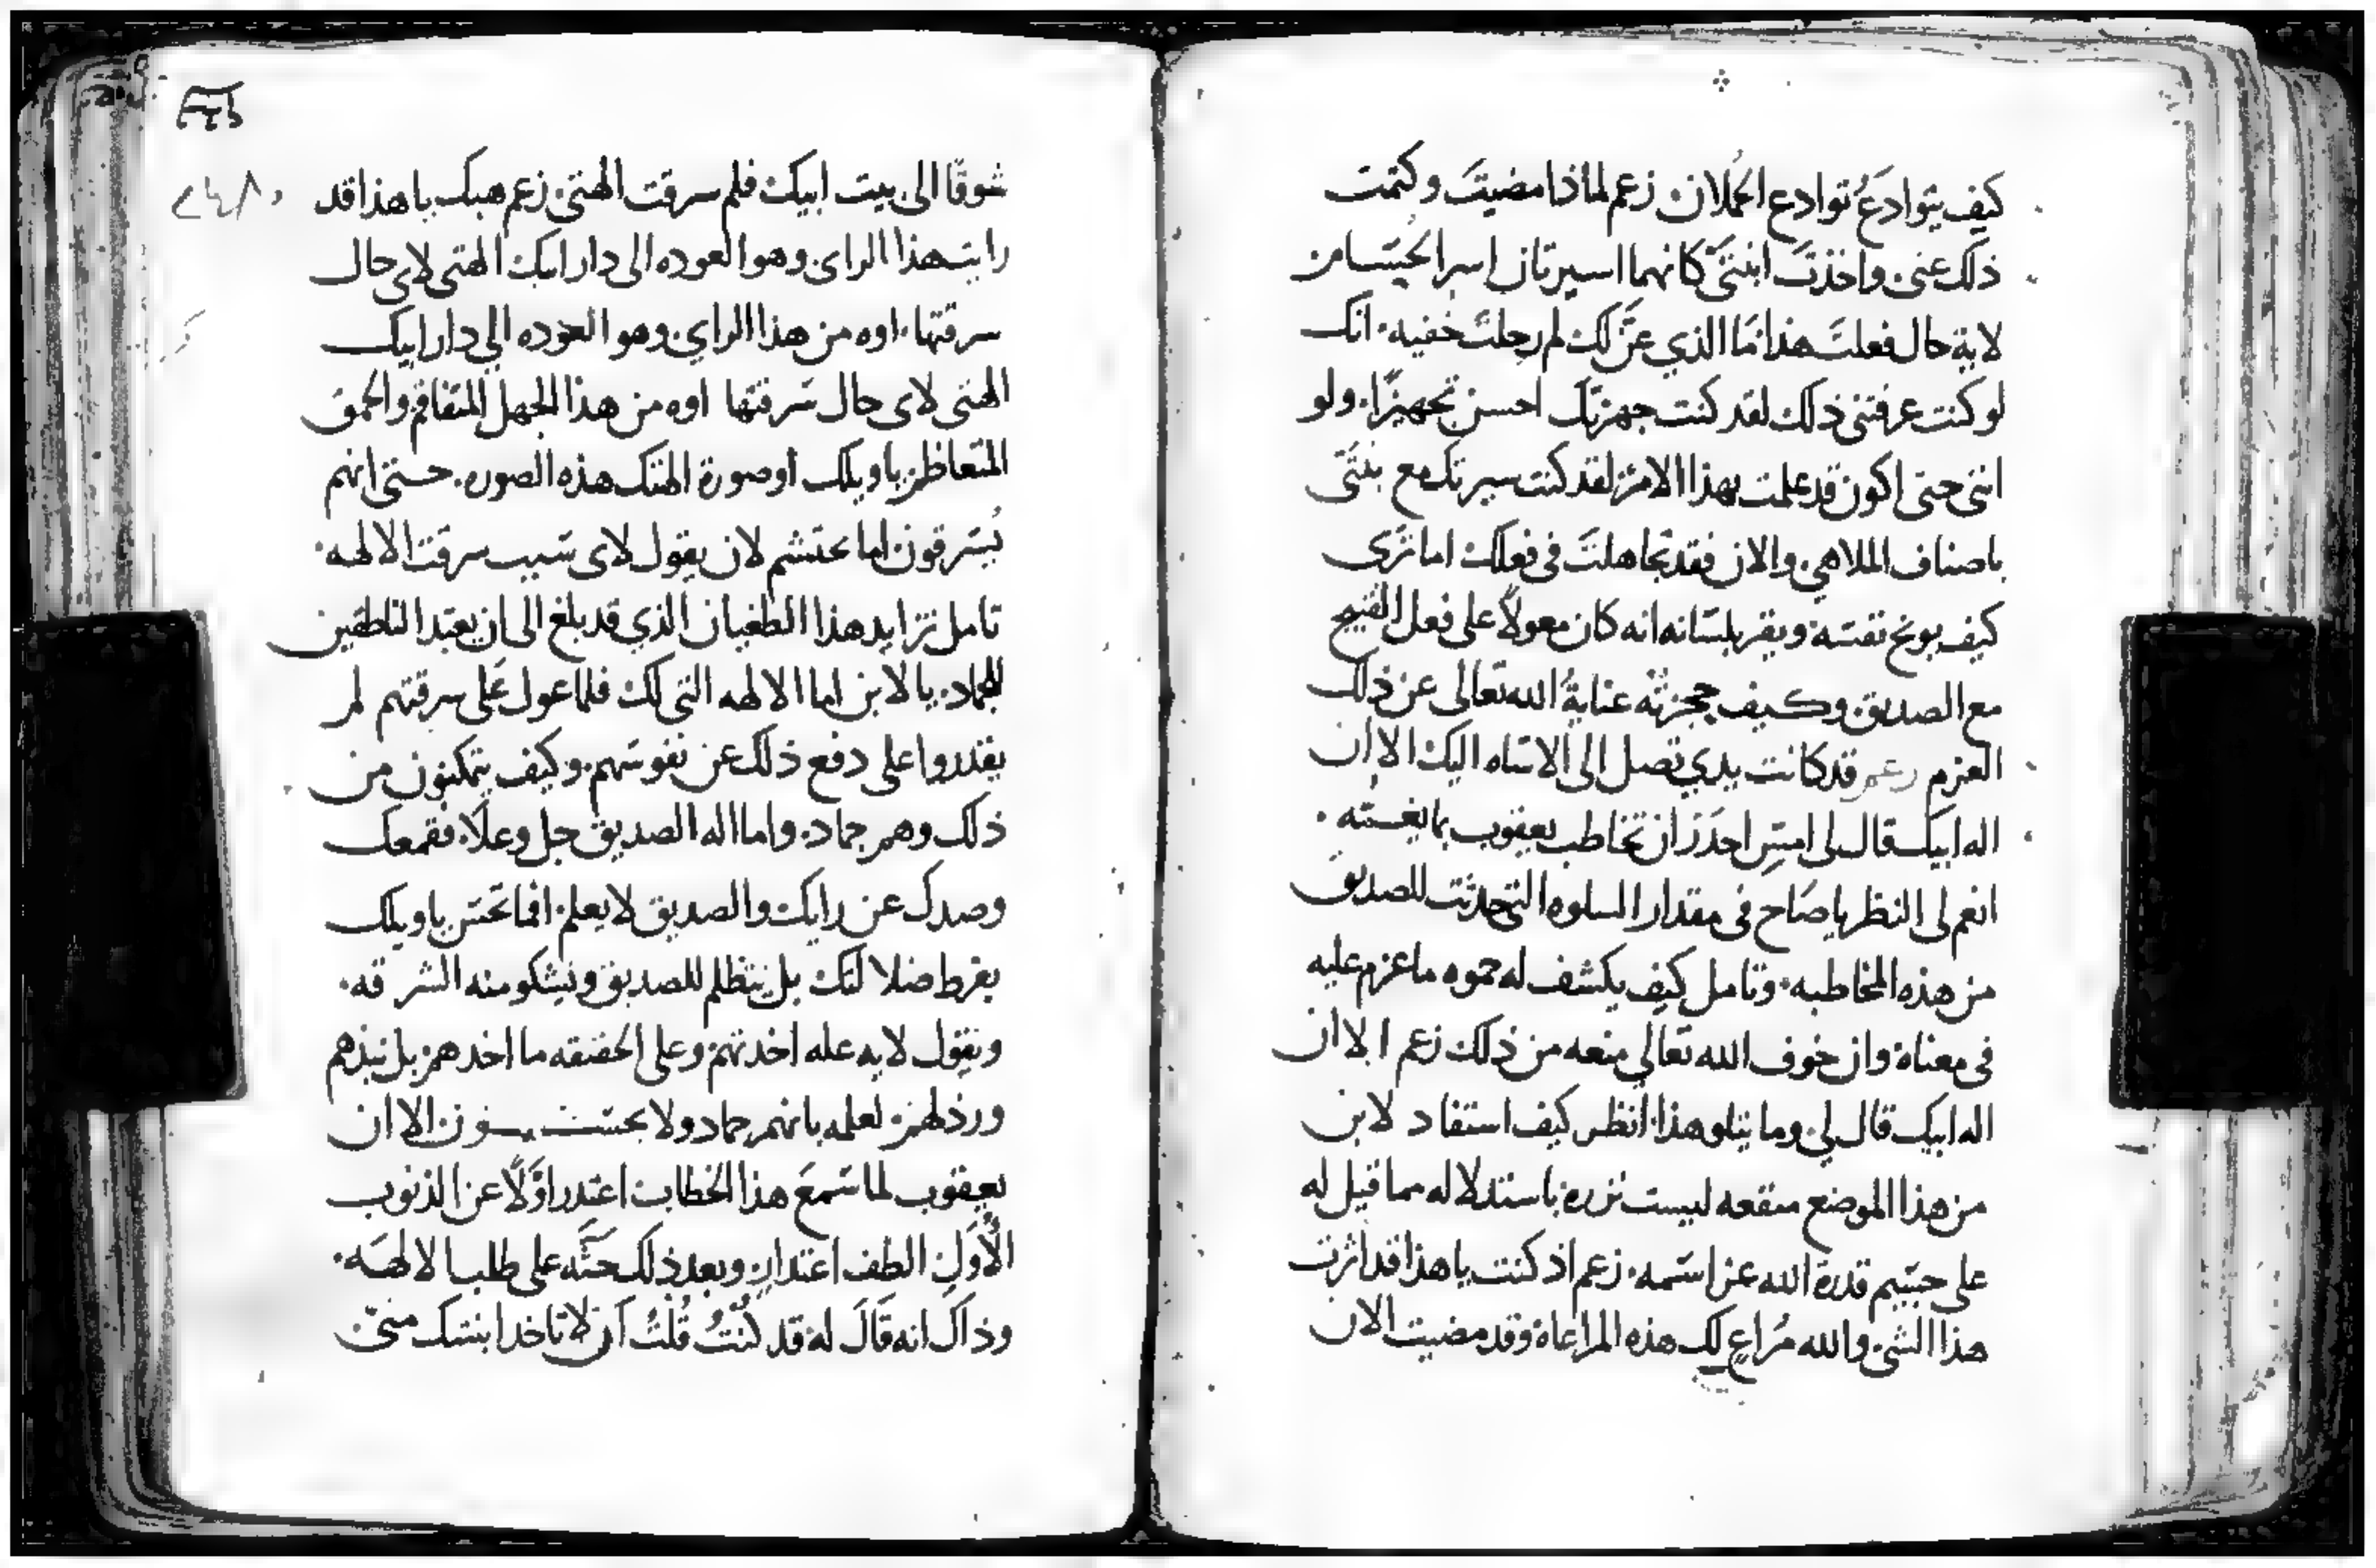 كيف يتوادع توادع الحملان زعم لماذا مضيت وكتمت
ذلك عنى واخذت ابنتى كانهما اسيرتان اسر الحسام من
لاية حال فعلت هذا ما الذي عن لك لم رحلت خفيه انك
لو كنت عرفتنى ذلك لقد كنت جهزتك احسن تجهيزا ولو
اننى حتى اكون قد علمت بهذا الامر لقد كنت سيرتك مع بنتى
باصناف الملاهي والان فقد تجاهلت فى فعلك اما ترى
كيف يوبخ نفسه ويقر بلسانه انه كان معولا على فعل القبيح
مع الصديق وكيف حجزته عناية الله تعالى عن ذلك
العزم زعم قد كانت يدي تصل الى الاساه اليك الا ان
اله ابيك قال لى امس احذر ان تخاطب يعقوب بما يغمه
انعم لى النظر يا صاح فى مقدار السلوه التى حدثت للصديق
من هذه المخاطبه وتامل كيف يكشف له حموه ما عزم عليه
فى معناه وان خوف الله تعالي منعه من ذلك زعم الا ان
اله ابيك قال لي وما يتلو هذا انظر كيف استفاد لابن
من هذا الموضع منفعه ليست نزره باستدلاله مما قيل له
على جسيم قدرة الله عز اسمه زعم اذ كنت يا هذا قد اثرت
هذا الشى والله مراع لك هذه المراعاة وقد مضيت الان
شوقا الى بيت ابيك فلم سرقت الهتى زعم هبك يا هذا قد
رايت هذا الراى وهو العوده الى دار ابيك الهتى لاى حال
سرقتها اوه من هذا الراي وهو العوده الي دار ابيك
الهتى لاى حال سرقتها اوه من هذا الجهل المتفاقم والحمق
المتعاظم ياويلك او صورة الهتك هذه الصوره حتى انهم
يسرقون اما تحتشم لان يقول لاى سبب سرقت الالهه
تامل تزايد هذا الطغيان الذي قد بلغ الى ان يعبد الناطقين
الجماد يالابن اما الالهه التى لك فلما عول على سرقتهم لم
يقدروا على دفع ذلك عن نفوسهم وكيف يتمكنون من
ذلك وهم جماد واما اله الصديق جل وعلا فقمعك
وصدك عن رايك والصديق لا يعلم افما تحس ياويلك
بفرط ضلالتك بل يتظلم للصديق وتشكو منه السرقه
وتقول لايه عله اخذتهم وعلى الحقيقه ما اخذهم بل نبذهم
ورذلهم لعلمه بانهم جماد ولا يحسون الا ان
يعقوب لما سمع هذا الخطاب اعتذر اولا عن الذنوب
الاول الطف اعتذار وبعد ذلك حثه على طلب الالهه
وذاك انه قال له قد كنت قلت ان لا تاخذ ابنتك منى